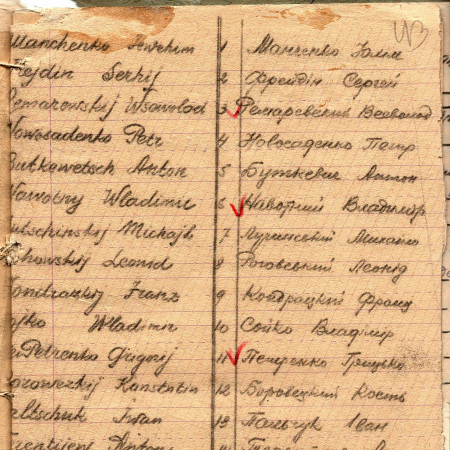 Manchenko 1 Манченко
Fejdin Serhij 2 Фрейдін Сергей
Wsewolod 3 Ремаревский Всеволод
Nowosadenko Petr 4 Новосаденко Петр
Butkewetsch Anton 5 Буткевич Антон
Nawotny Wladimir 6 Навотний Владимір
Lutschinskij Michajlo 7 Лучинский Михайло
Leonid 8 Роговський Леонід
Kondrazkij Franz 9 Кондрацкий Франц
Sojko Wladimir 10 Сойко Владімір
Petrenko Grigorij 11 Петренко Грицько
Borowezkij Konstatin 12 Боровецкий Кость
Paltschuk Iwan 13 Пальчук Іван